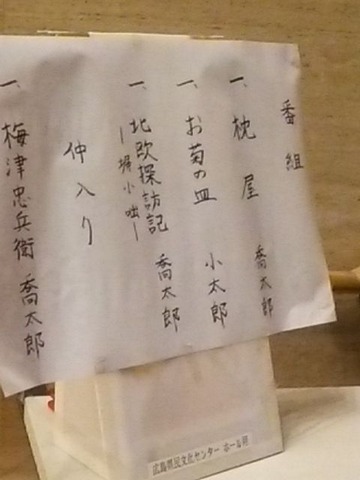 番組
一、枕屋 喬太郎
一、お菊の皿 小太郎
一、北欧探訪記 喬太郎
―擬小咄―
仲入り
一、梅津忠兵衛 喬太郎
広島県民文化センター ホール用